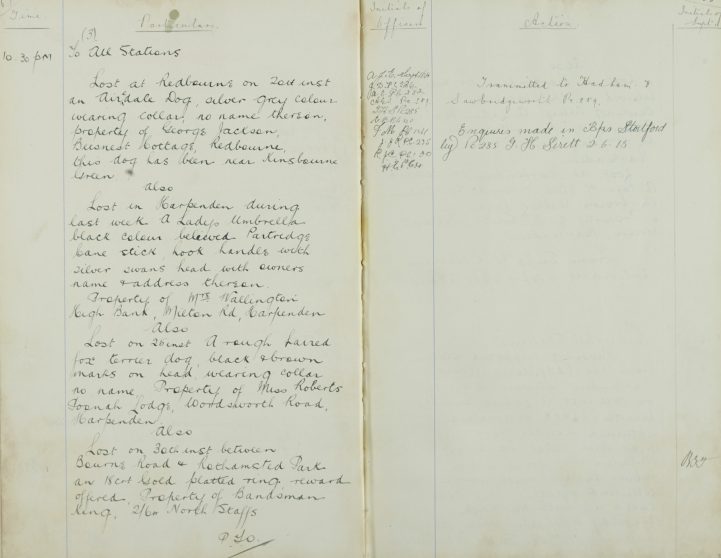 Time
Particulars
Initials of
Officers
Action
(3)
10.30 pm
To All Stations
Lost at Redbourne on 20th inst
an Airdale Dog, silver grey colour
wearing collar, no name thereon,
property of George Jackson,
Cottage, Redbourne,
this dog has been near Kinsbourne
Green
also
Lost in Harpenden during
last week A Ladys Umbrella
black colour believed Partridge
Cane stick, hook handle with
silver swans head with owners
name & address thereon.
Property of Mrs Wallington
High Bank, Milton Rd, Harpenden
Also
Lost on 20 inst A rough haired
fox terrier dog, black & brown
marks on head, wearing collar
no name, Property of Miss Roberts
Lodge, Wordsworth Road,
Harpenden
Also
Lost on 30th inst between
Bourne Road & Rothamsted Park
an 18 crt Gold platted ring, reward
offered, Property of Bandsman
King, 2/6th North Staffs
Transmitted to Hadham &
Sawbridgeworth
Enquiries made in Bps Stortford
by Pc 285 H Sirett 2.6.15